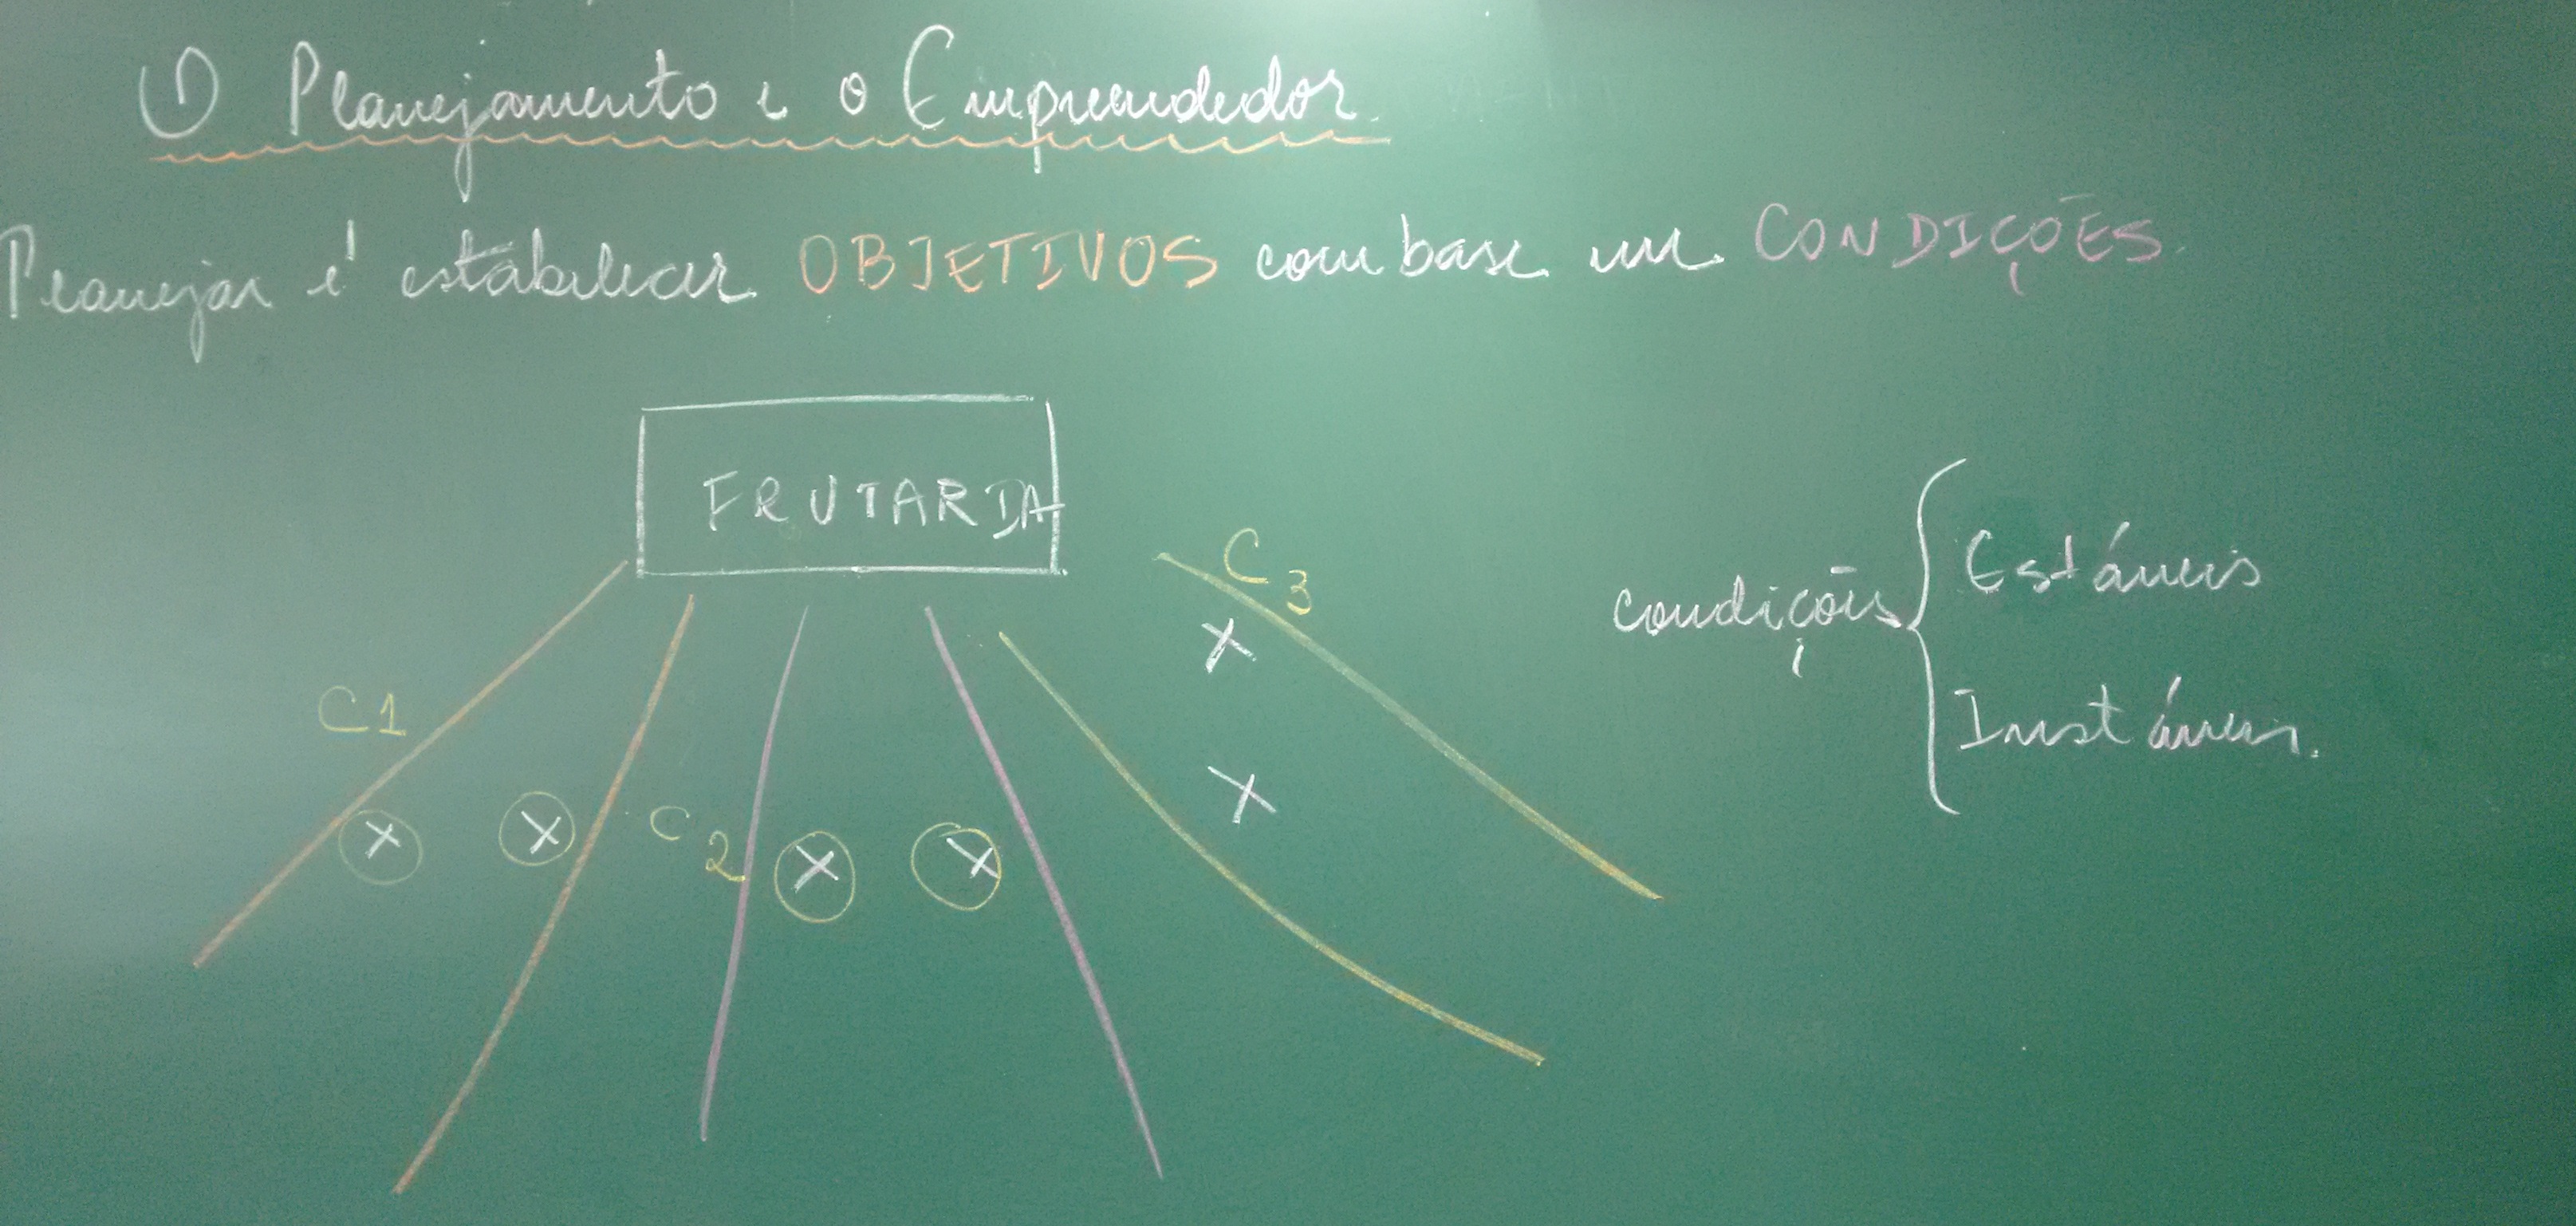 ① Planejamento e o Empreendedor.
Planejar é estabelecer OBJETIVOS com base em CONDIÇÕES.
FRUTARDA
C3
X
condições { Estáveis
Instáveis.
C1
X
X X C2 X X